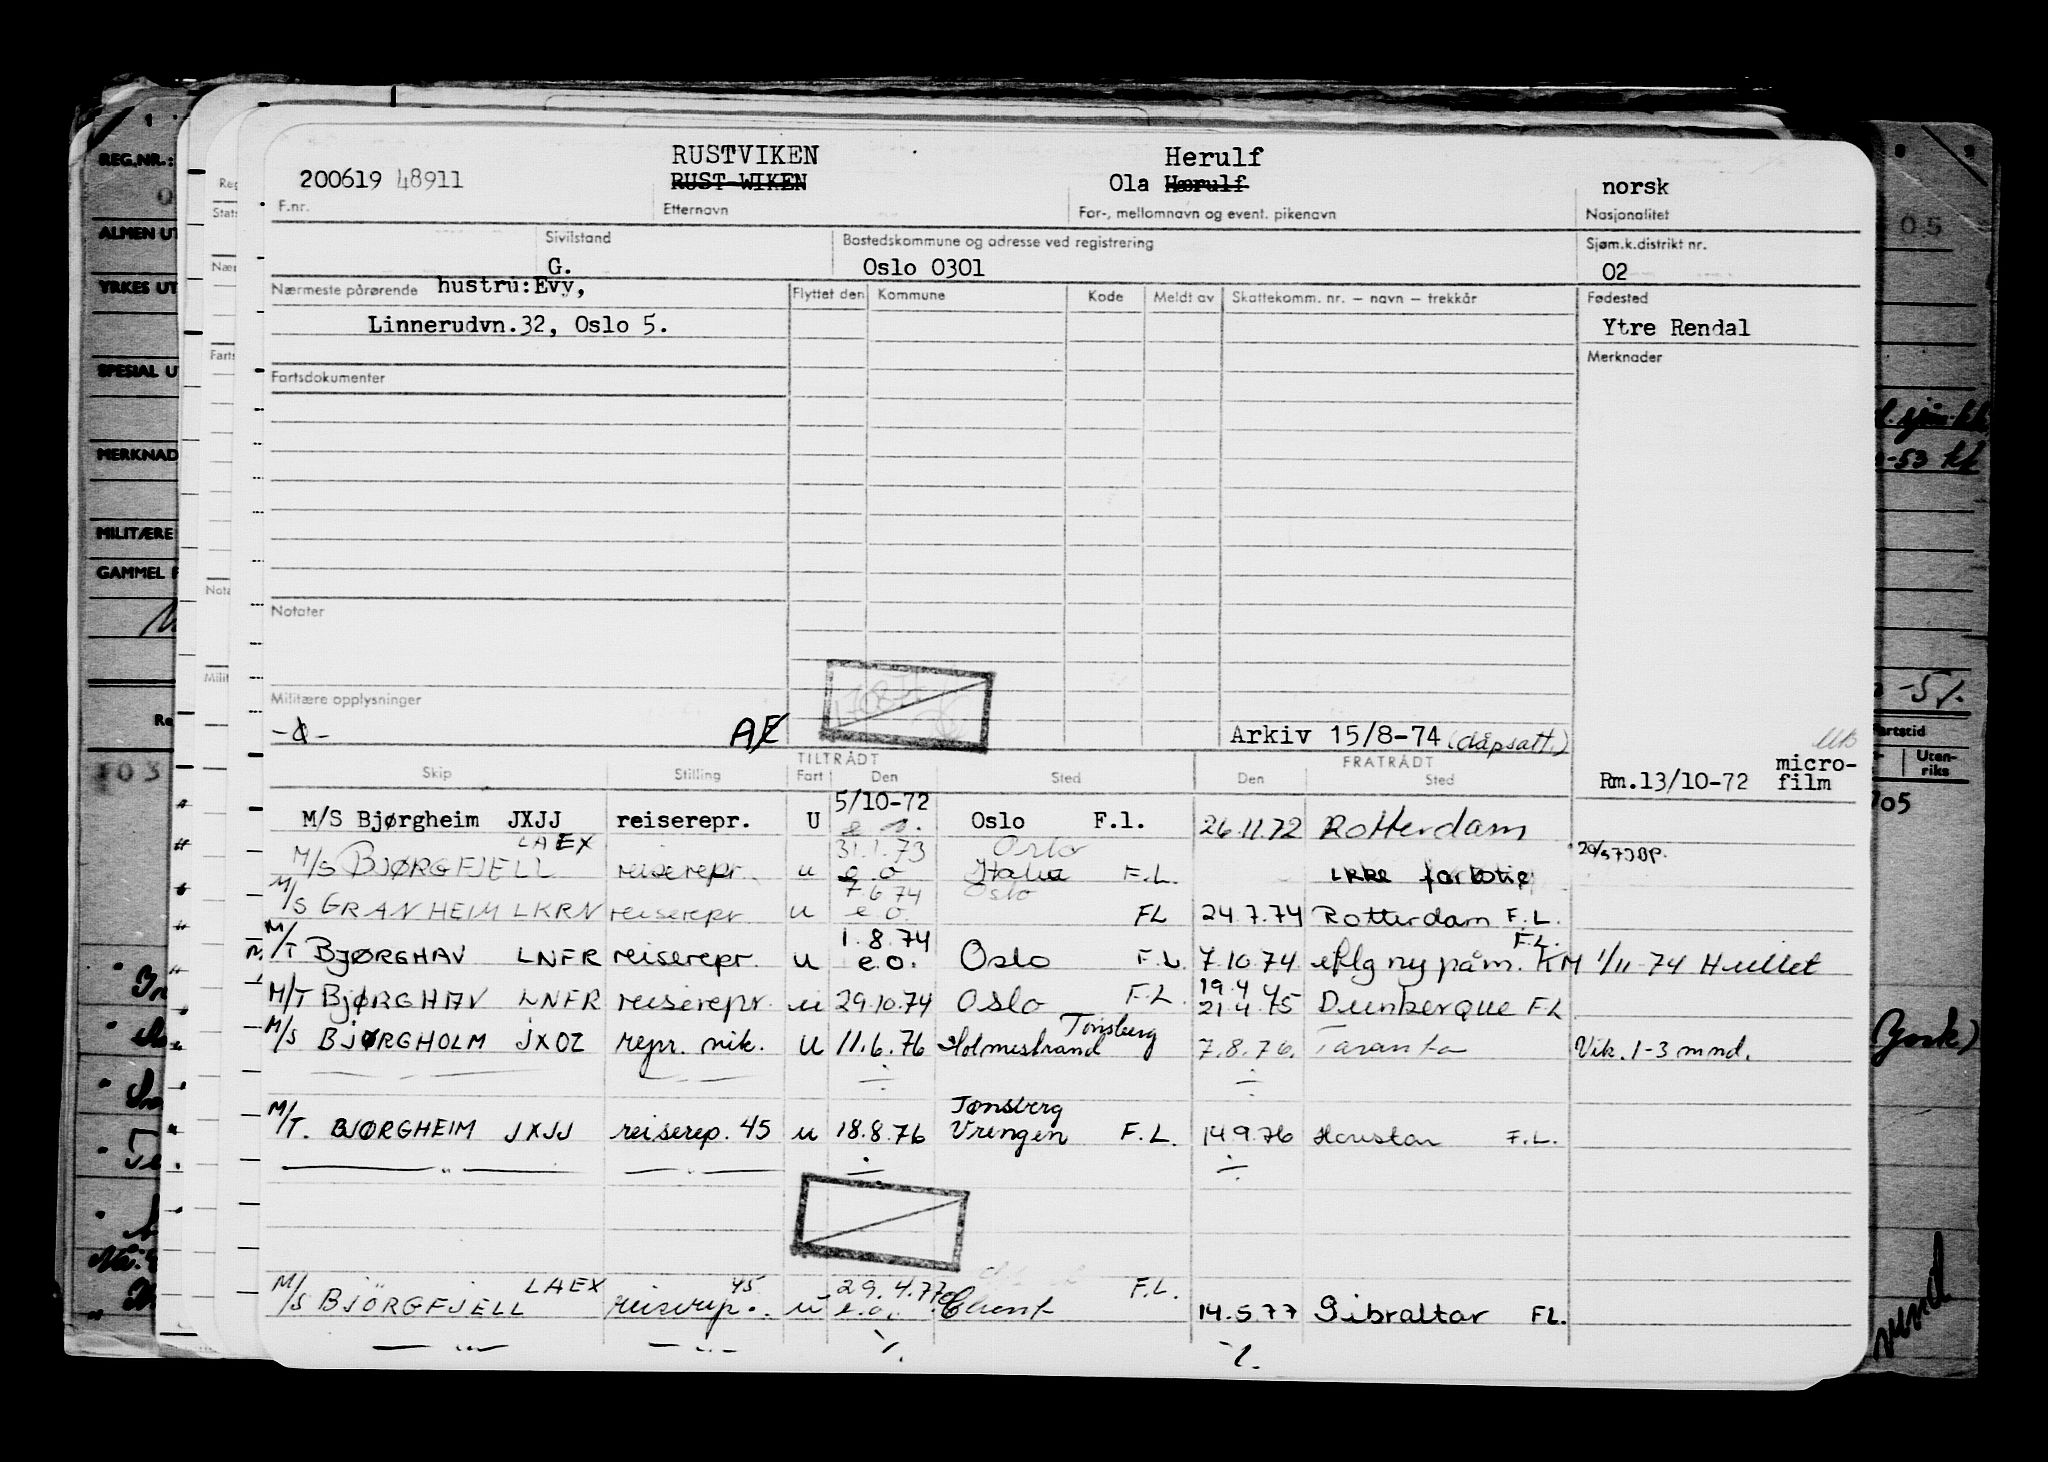 RUSTVIKEN Herulf
200619 48911 RUST-WIKEN Ola Hærulf norsk
F.nr. Etternavn For-, mellomnavn og event. pikenavn Nasjonalitet
Sivilstand Bostedskommune og adresse ved registrering Sjøm.k.distrikt nr.
G. Oslo 0301 02
Nærmeste pårørende hustru:Evy, Flyttet den Kommune Kode Meldt av Skattekomm. nr. – navn – trekkår Fødested
Linnerudvn.32, Oslo 5. Ytre Rendal
Merknader
Fartsdokumenter
Notater
Militære opplysninger
Arkiv 15/8-74 (dåpsatt.)
TILTRÅDT FRATRÅDT
Skip Stilling Fart Den Sted Den Sted Rm.13/10-72 micro-
film
5/10-72
M/S Bjørgheim JXJJ reiserepr. U e.o. Oslo F.l. 26.11.72 Rotterdam
LAEX 31.1.73 Oslo
M/S BJØRGFJELL reiserepr. u e.o Italia F.L. ikke
7.6.74 Oslo
M/S GRANHEIM LKRN reiserepr u e.o. FL 24.7.74 Rotterdam F.L.
1.8.74 F.L.
M/T BJØRGHAV LNFR reiserepr. u e.o. Oslo F.L. 7.10.74 eflg ny påm. KM 1/11-74 Hullet
19.4.75
M/T BJØRGHAV LNFR reiserepr. u 29.10.74 Oslo F.L. 21.4.75 Dunkerque FL
Tønsberg
M/S BJØRGHOLM JXOZ repr. vik. U 11.6.76 Holmestrand 7.8.76. Taranto Vik. 1-3 mnd.
Tønsberg
M/T. BJØRGHEIM JXJJ reiserep. 45 u 18.8.76 Vrengen F.L. 14.9.76 Houston F.L.
LAEX 45 29.4.77 F.L.
M/S BJØRGFJELL reiserep. u e.o. 14.5.77 Gibraltar FL.
REG.NR.:
ALMEN UT
YRKES UT
SPESIAL U
MERKNAD
MILITÆRE
GAMMEL F
05
-53 kk
Fartstid
Uten-
riks
705